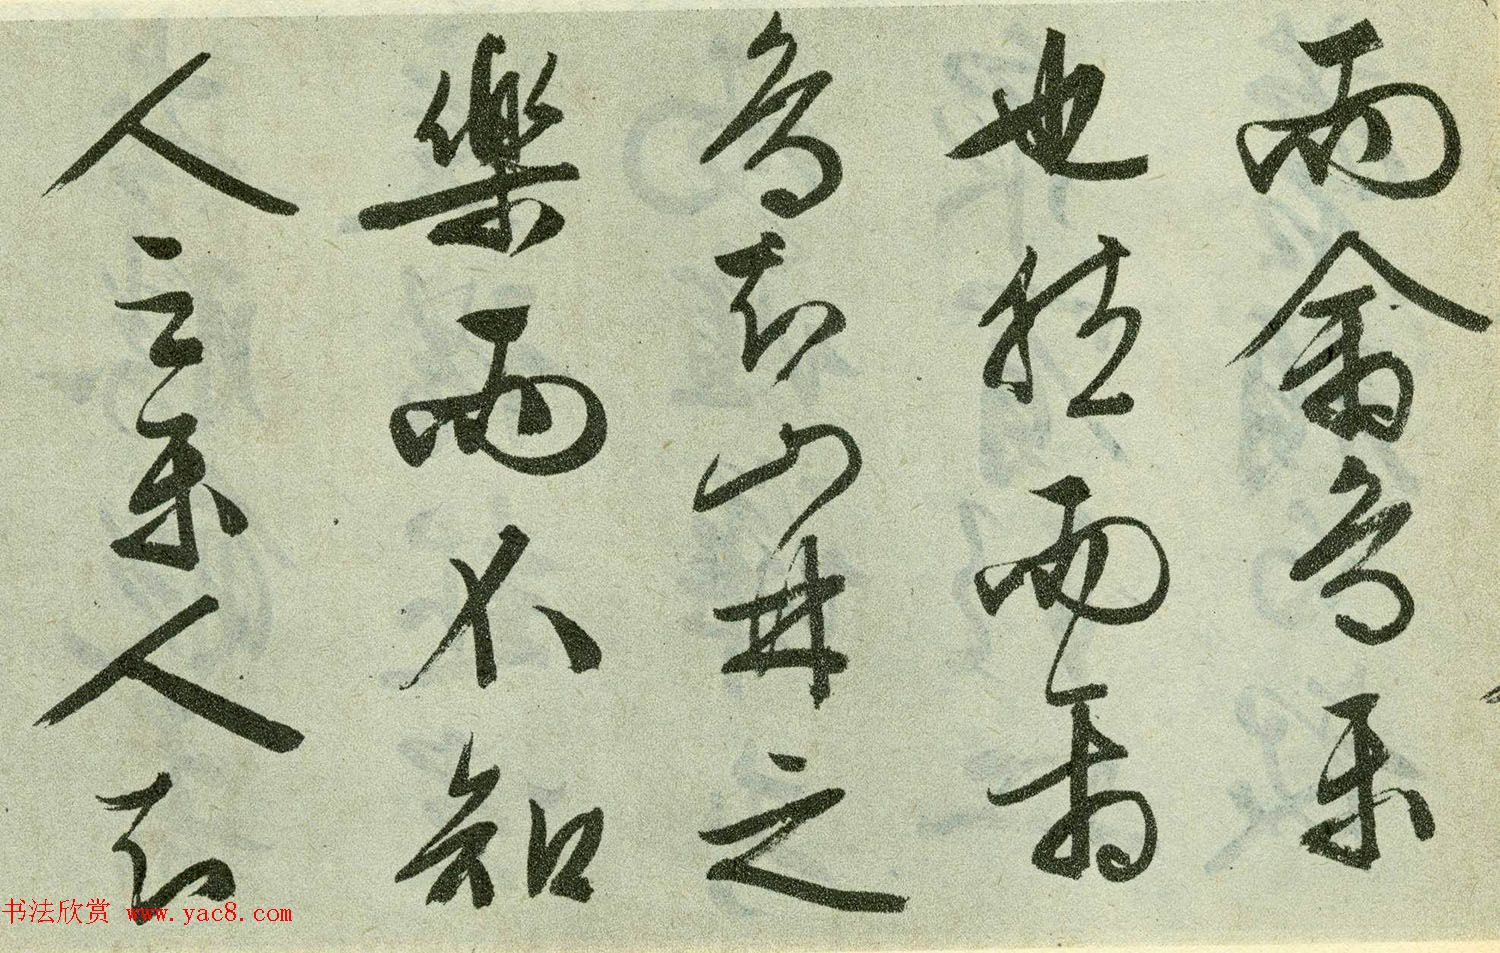 而禽鳥樂
也然而禽
鳥知山林之
樂而不知
人之樂人知
书法欣赏 www.yac8.com